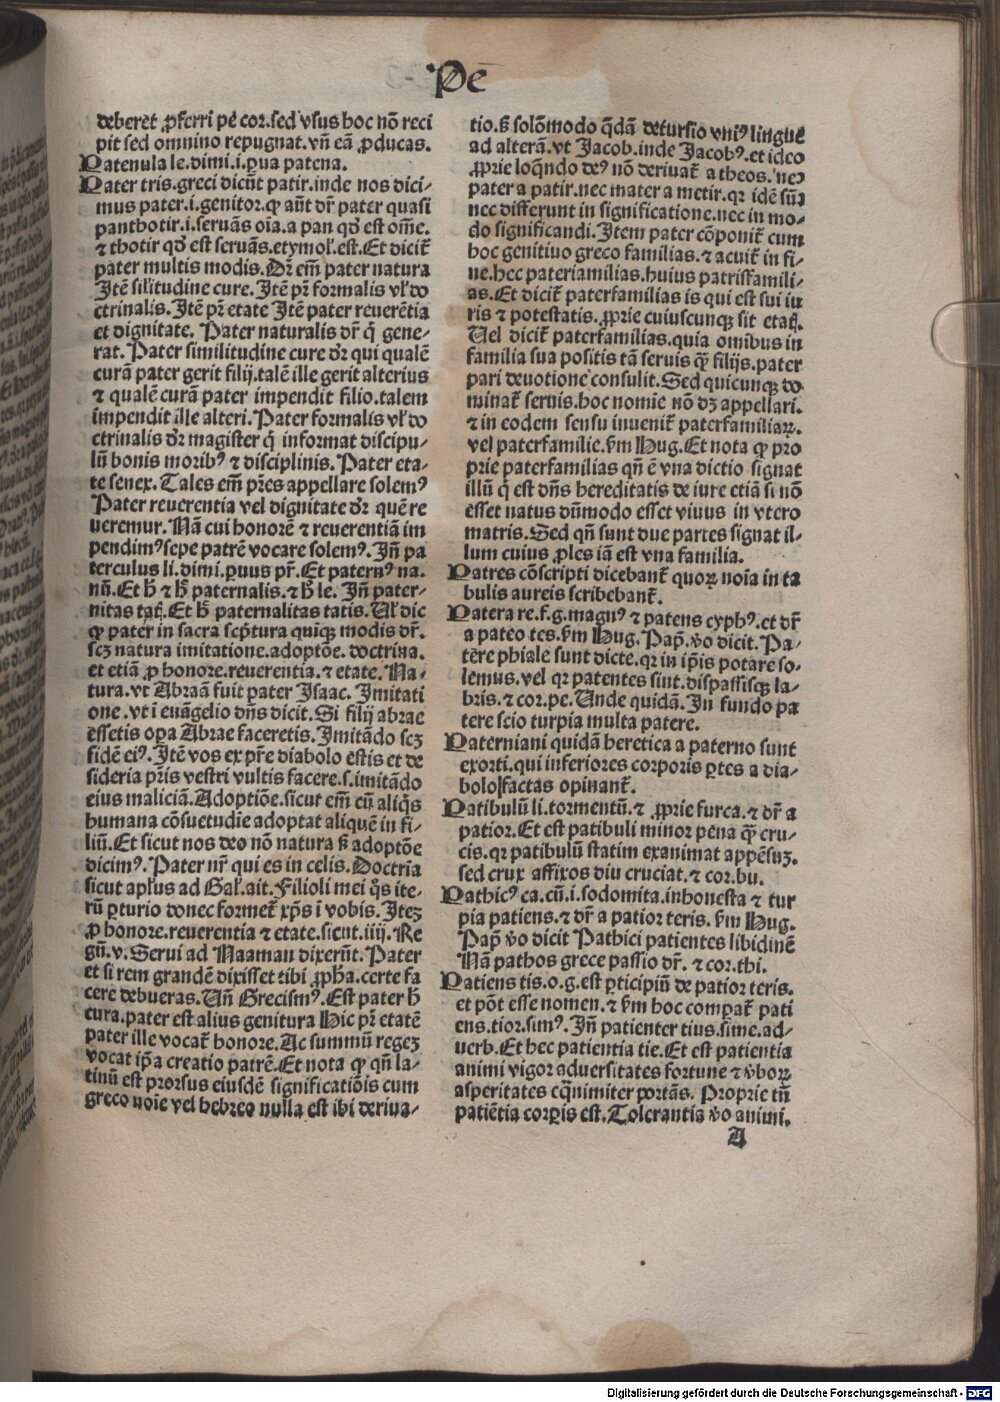 Pe
deberet ꝓferri pe᷑ cor.sed vsus hoc nõ reci
pit sed omnino repugnat.vñ eã ꝓducas.
Patenula le.dimi.i.ꝑua patena.
Pater tris.greci dicũt patir.inde nos dici⸗
mus pater.i.genitor.ꝙ aũt dr̃ pater quasi
panthotir.i.seruãs oĩa.a pan qď est om̃e.
⁊ thotir qď est seruãs.etymol'.est.Et dicit̃
pater multis modis.Dr̃ em̃ pater natura
Jtẽ sil'itudine cure.Jtẽ pr̃ formalis vľ do
ctrinalis.Jtẽ pr̃ etate Jtẽ pater reuerẽtia
et dignitate. Pater naturalis dr̃ q̃ gene⸗
rat.Pater similitudine cure dr̃ qui qualẽ
curã pater gerit filij.talẽ ille gerit alterius
⁊ qualẽ curã pater impendit filio.talem
impendit ille alteri.Pater formalis vľ do
ctrinalis dr̃ magister q̃ informat discipu⸗
lũ bonis moribꝰ ⁊ disciplinis.Pater eta⸗
te senex.Tales em̃ pr̃es appellare solemꝰ
Pater reuerentia vel dignitate dr̃ quẽ re
ueremur.Nã cui honorẽ ⁊ reuerentiã im
pendimꝰ sepe patrẽ vocare solemꝰ.Jñ pa
terculus li.dimi.ꝑuus pr̃.Et paternꝰ na.
nũ.Et h̃ ⁊ h̃ paternalis.⁊ h̃ le. Jñ pater⸗
nitas tatꝭ.Et h̃ paternalitas tatis.Ul' dic
ꝙ pater in sacra scp̃tura quiqꝫ modis dr̃.
scꝫ natura imitatione.adoptõe.doctrina.
et etiã ꝓ honore.reuerentia.⁊ etate.Na⸗
tura.vt Abraã fuit pater Jsaac.Jmitati
one.vt ĩ euãgelio dñs dicit.Si filij abrae
essetis oꝑa Abrae faceretis.Jmitãdo scꝫ
fidẽ eiꝰ.Jtẽ vos ex pr̃e diabolo estis et de
sideria pr̃is vestri vultis facere.s.imitãdo
eius maliciã.Adoptiõe.sicut em̃ cũ aliq̃s
humana cõsuetudĩe adoptat aliquẽ in fi⸗
liũ.Et sicut nos deo nõ natura ß adoptõe
dicimꝰ.Pater nr̃ qui es in celis.Doctrĩa
sicut apľus ad Gal'.ait.Filioli mei q̃s ite⸗
rũ ꝑturio donec formet̃ xp̃s ĩ vobis.Jteꝫ
ꝓ honore.reuerentia ⁊ etate.sicut.iiij.Re
gũ.v.Serui ad Naaman dixerũt.Pater
et si rem grandẽ dixisset tibi ꝓpha.certe fa
cere debueras.Uñ Grecismꝰ.Est pater h̃
cura.pater est alius genitura Hic pr̃ etatẽ
pater ille vocat̃ honore.Ac summũ regeꝫ
vocat ip̃a creatio patrẽ.Et nota ꝙ qñ la⸗
tinũ est prorsus eiusdẽ significatiõis cum
greco noĩe vel hebreo nulla est ibi deriua⸗
tio.ß solõmodo q̃dã detursio vniꝰ lingue
ad alterã.vt Jacob.inde Jacobꝰ.et ideo
ꝓprie loq̃ndo deꝰ nõ deriuat̃ a theos.neꝫ
pater a patir.nec mater a metir.qꝛ idẽ sũt
nec differunt in significatione.nec in mo⸗
do significandi.Jtem pater cõponit̃ cum
hoc genitiuo greco familias.⁊ acuit̃ in fi⸗
ne.hec paterfamilias.huius patrisfamili⸗
as.Et dicit̃ paterfamilias is qui est sui iu
ris ⁊ potestatis.ꝓprie cuiuscunqꝫ sit etatꝭ.
Uel dicit̃ paterfamilias.quia omĩbus in
familia sua positis tã seruis q̃ꝫ filijs.pater
pari deuotione consulit.Sed quicunqꝫ do
minat̃ seruis.hoc nomĩe nõ dꝫ appellari.
⁊ in eodem sensu inuenit̃ paterfamiliaꝝ.
vel paterfamilie.ẞm Hug.Et nota ꝙ pro
prie paterfamilias qñ ẽ vna dictio signat
illũ q̃ est dñs hereditatis de iure etiã si nõ
esset natus dũmodo esset viuus in vtero
matris.Sed qñ sunt due partes signat il⸗
lum cuius ꝓles iã est vna familia.
Patres cõscripti dicebant̃ quoꝝ noĩa in ta
bulis aureis scribebant̃.
Patera re.f.g.magnꝰ ⁊ patens cyphꝰ.et dr̃
a pateo tes.ẞm Hug. Pap̃.ṽo dicit.Pa⸗
tẽre phiale sunt dicte.qꝛ in ip̃is potare so⸗
lemus.vel qꝛ patentes sint.dispassisqꝫ la⸗
bris.⁊ cor.pe.Unde quidã.Jn fundo pa
tere scio turpia multa patere.
Paterniani quidã heretica a paterno sunt
exorti.qui inferiores corporis ꝑtes a dia⸗
bolo factas opinant̃.
Patibulũ li.tormentũ.⁊ ꝓprie furca.⁊ dr̃ a
patior.Et est patibuli minor pena q̃ꝫ cru⸗
cis.qꝛ patibulũ statim exanimat appẽsuꝫ.
sed crux affixos diu cruciat.⁊ cor.bu.
Pathicꝰ ca.cũ.i.sodomita.inhonesta ⁊ tur
pia patiens.⁊ dr̃ a patior teris. ẞm Hug.
Pap̃ ṽo dicit Pathici patientes libidinẽ
Nã pathos grece passio dr̃.⁊ cor.thi.
Patiens tis.o.g.est ꝑticipiũ de patior teris.
et põt esse nomen.⁊ ẞm hoc compat̃ pati
ens.tior.simꝰ.Jñ patienter tius.sime.ad⸗
uerb.Et hec patientia tie.Et est patientia
animi vigor aduersitates fortune ⁊ ṽboꝝ
asperitates eq̃nimiter portãs. Proprie tñ
patiẽtia corꝑis est.Tolerantia ṽo animi.
A
Digitalisierung gefördert durch die Deutsche Forschungsgemeinschaft - DFG